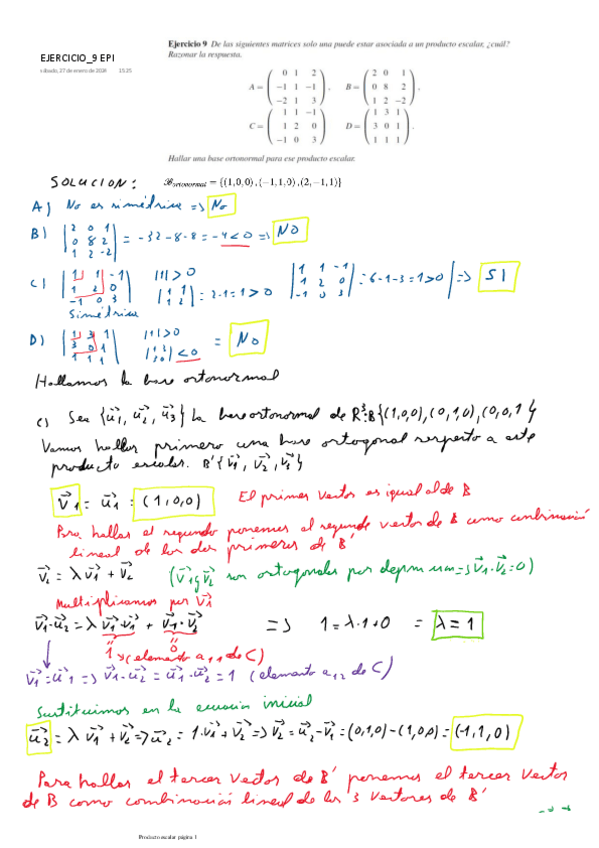 EJERCICIO_9 EPI
sábado, 27 de enero de 2024 15:25
Ejercicio 9 De las siguientes matrices solo una puede estar asociada a un producto escalar, ¿cuál?
Razonar la respuesta.
A = ( 0 1 2 / −1 1 −1 / −2 1 3 ), B = ( 2 0 1 / 0 8 2 / 1 2 −2 ),
C = ( 1 1 −1 / 1 2 0 / −1 0 3 ) D = ( 1 3 1 / 3 0 1 / 1 1 1 ).
Hallar una base ortonormal para ese producto escalar.
SOLUCION: ℬortonormal = {(1,0,0),(−1,1,0),(2,−1,1)}
A) No es simétrica => No
B) | 2 0 1 / 0 8 2 / 1 2 -2 | = -32-8-8 = -4 < 0 => NO
C) | 1 1 -1 / 1 2 0 / -1 0 3 | |1| > 0 | 1 1 / 1 2 | = 2-1 = 1 > 0 | 1 1 -1 / 1 2 0 / -1 0 3 | = 6-1-3 = 1 > 0 => SI
Simétrica
D) | 1 3 1 / 3 0 1 / 1 1 1 | |1| > 0 | 1 3 / 3 0 | < 0 = No
Hallamos la base ortonormal
c) Sea {u⃗1, u⃗2, u⃗3} la base ortonormal de R³: B{(1,0,0),(0,1,0),(0,0,1}
Vamos hallar primero una base ortogonal respecto a este
producto escalar. B'{v⃗1, v⃗2, v⃗1}
v⃗1 = u⃗1 = (1,0,0) El primer vector es igual al de B
Para hallar el segundo ponemos el segundo vector de B como combinació
lineal de los dos primeros de B'
v⃗2 = λ v⃗1 + v⃗2 (v⃗1 y v⃗2 son ortogonales por => v⃗1·v⃗2=0)
Multiplicamos por v⃗1
v⃗1·u⃗2 = λ v⃗1·v⃗1 + v⃗1·v⃗2 => 1 = λ·1+0 = λ = 1
1 (elemento a11 de C) 0
v⃗1=u⃗1 => v⃗1·u⃗2 = u⃗1·u⃗2 = 1 (elemento a12 de C)
Sustituimos en la ecuación inicial
u⃗2 = λ v⃗1 + v⃗2 => u⃗2 = 1·v⃗1 + v⃗2 => v⃗2 = u⃗2 - v⃗1 = (0,1,0) - (1,0,0) = (-1,1,0)
Para hallar el tercer vector de B' ponemos el tercer vector
de B como combinación lineal de los 3 vectores de B'
Producto escalar página 1